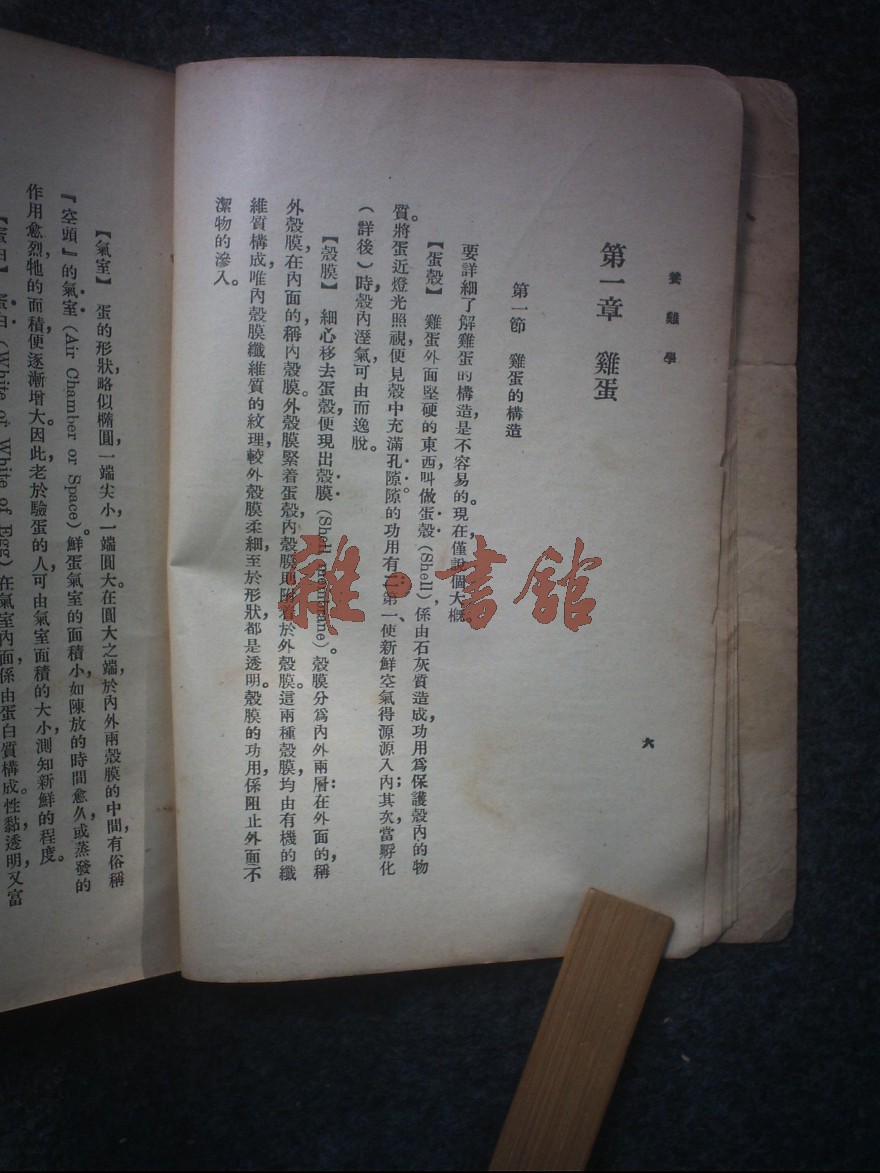 養雞學
六
第一章　雞蛋
第一節　雞蛋的構造
要詳細了解雞蛋的構造，是不容易的。現在僅說個大概。
【蛋殼】　雞蛋外面堅硬的東西，叫做蛋殼（Shell），係由石灰質造成，功用為保護殼內的物
質。將蛋近燈光照視，便見殼中充滿孔隙。隙的功用有二：第一、使新鮮空氣得源源入內；其次當孵化
（詳後）時，殼內溼氣，可由而逸脫。
【殼膜】　細心移去蛋殼，便現出殼膜（Shell membrane）。殼膜分為內外兩層：在外面的，稱
外殼膜，在內面的，稱內殼膜。外殼膜緊着蛋殼，內殼膜則附着於外殼膜。這兩種殼膜，均由有機的纖
維質構成，唯內殼膜纖維質的紋理，較外殼膜柔細，至於形狀，都是透明。殼膜的功用，係阻止外面不
潔物的滲入。
【氣室】　蛋的形狀略似橢圓，一端尖小，一端圓大。在圓大之端，於內外兩殼膜的中間，有俗稱
『空頭』的氣室（Air Chamber or Space）。鮮蛋氣室的面積小，如陳放的時間愈久，或蒸發的
作用愈烈，牠的面積便逐漸增大。因此老於驗蛋的人，可由氣室面積的大小，測知新鮮的程度。
【蛋白】　蛋白（White of White of Egg）在氣室內面，係由蛋白質構成。性黏透明，又富
雜·書館